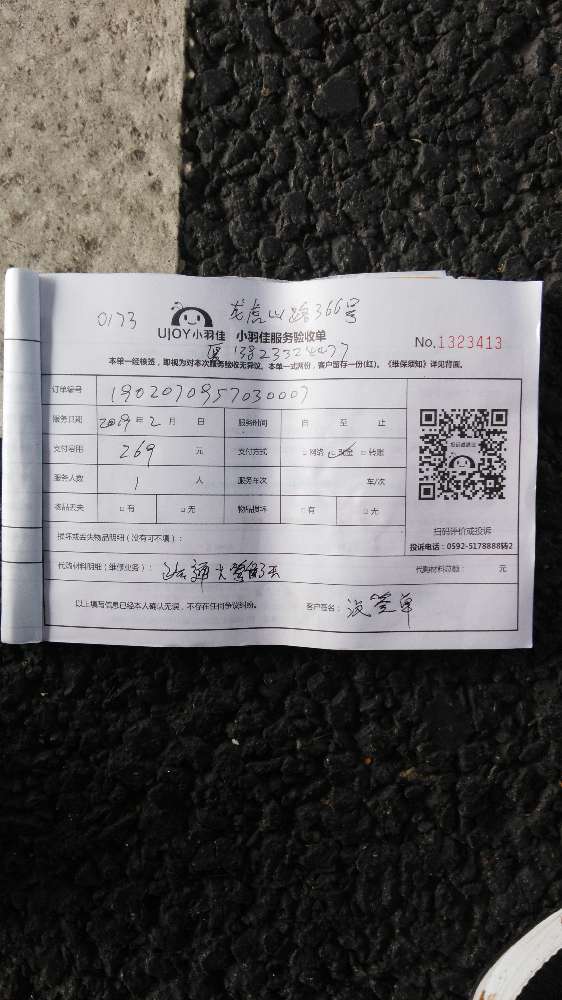 0173
龙虎山路366号
UJOY小羽佳 小羽佳服务验收单
No.1323413
13823324477
本单一经核签，即视为对本次服务验收无异议。本单一式两份，客户留存一份(红)。《维保须知》详见背面。
订单编号 1902070957030007
服务日期 2019年2月 日 服务时间 自 至 止
支付费用 269 元 支付方式 □网络 □现金 □转账
服务人数 1 人 服务车次 车/次
物品丢失 □有 □无 物品损坏 □有 □无
损坏或丢失物品明细（没有可不填）：
扫码评价或投诉
投诉电话：0592-5178888转2
代购材料明细（维修业务）： 通大管 代购材料总额： 元
以上填写信息已经本人确认无误，不存在任何争议纠纷。 客户签名： 没签单